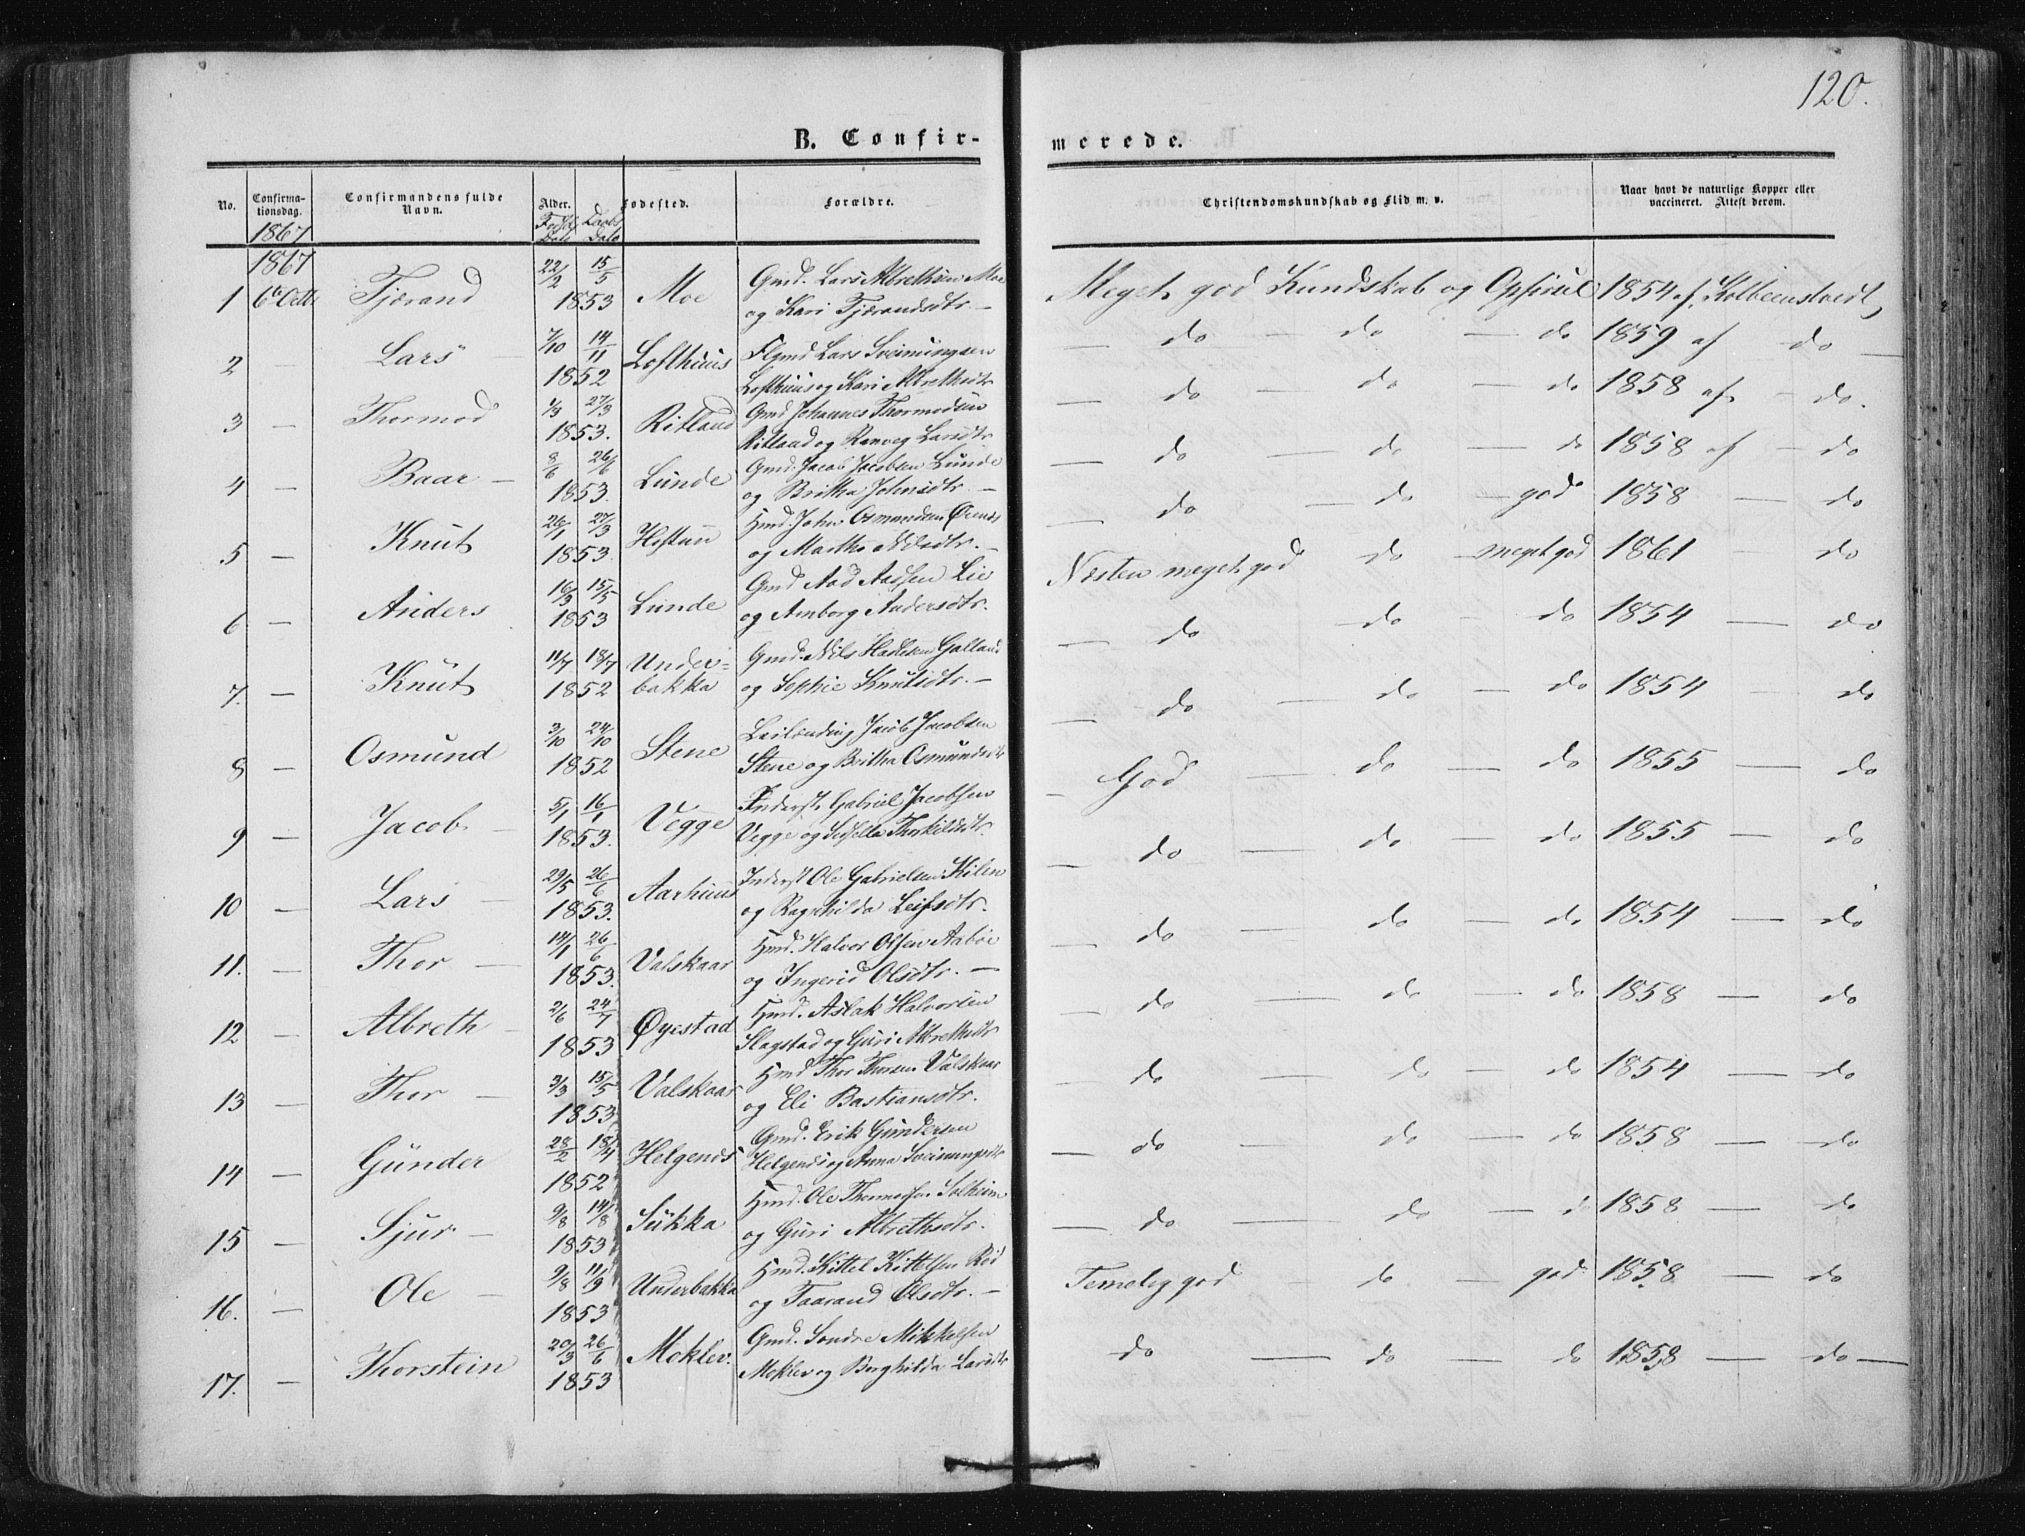 120.
B. Confirmerede.
No. Confirmationsdag. Confirmandens fulde Navn. Alder. Fødested. Forældre. Christendomskundskab og Flid m. v. Naar havt de naturlige Kopper eller vaccineret. Attest derom.
1867 Føds. Dato Daabs Dato
1867
1 6te Octb Tjærand 22/2 15/5 1853 Moe Gmd. Lars Albrethsen Moe
og Kari Tjærandsdtr. — Meget god Kundskab og Opførsel 1854 af Kolbeenstvedt
2 — Lars 7/10 14/11 1852 Lofthuus Flgmd Lars Sveinungsen
Lofthuus og Kari Albrethsdtr — do — do — do 1859 af do —
3 — Thormod 1/3 27/3 1853. Ritland Gmd Johannes Thormodsen
Ritland og Ranveg Larsdtr — do — do — do 1858 af — do.
4 — Baar — 8/6 26/6 1853. Lunde Gmd. Jacob Jacobsen Lunde
og Britha Johnsdtr. — — do — do — do 1858 af — do
5 — Knut 26/1 27/3 1853. Hostun Hmd. John Osmundsen
og Martha Nilsdtr. — — do — do — god 1858 — do
6 — Anders 16/3 15/5 1853 Lunde Gmd Aad Aadsen Lie
og Amborg Andersdtr. Næsten meget god do — meget god 1861 — do
7. — Knut 11/7 18/7 1852 Underbakka Gmd. Nils Hadlesen Galland
og Sophie Knutsdtr. — — do do — do 1854 — do
8 — Osmund 3/10 24/10 1852 Stene Leilænding Jacob Jacobsen
Stene og Britha Osmundsdtr — do — do — do 1854 — do
9 — Jacob — 5/1 16/1 1853. Vegge Inderst. Gabriel Jacobsen
Vegge og Sidsella Thorkildsdtr. — God — do — do 1855 — do
10 — Lars — 29/5 26/6 1853. Aarhuus Inderst Ole Gabrielsen Kilen
og Ragnhilda Leifsdtr. — do — do — do 1855 — do
11. — Thor — 14/1 26/6 1853. Valskaar Hmd. Halvor Olsen Aabøe
og Ingerid Olsdtr. — — do — do — do 1854 — do
12 — Albreth — 2/6 24/7 1853 Øyestad Hmd. Aslak Halvorsen
Slagstad og Guri Albrethsdtr — do — do — do 1858 — do
13 — Thor — 3/3 15/5 1853 Valskaar Hmd Thor Thorsen Valskaar
og Eli Bastiansdtr. do — do — do 1854 — do
14 — Gunder 28/2 18/4 1852 Helgends Gmd. Erik Gundersen
Helgends og Anna Sveinungsdtr — do — do — do 1858 — do
15 — Sjur — 9/8 14/8 1853 Sukka Hmd. Ole Thormodsen Solheim
og Guri Albrethsdtr. — do — do — do 1858 — do
16. — Ole — 9/8 11/9 1853 Underbakka Hmd. Kittel Kittelsen Rød
og Taarand Olsdtr. — Temelig god — do — god 1858 — do
17. — Thorstein 20/3 26/6 1853 Moklev. Gmd. Sondre Mikkelsen
Moklev og Borghilda Larsdtr do — do — do 1858 — do —